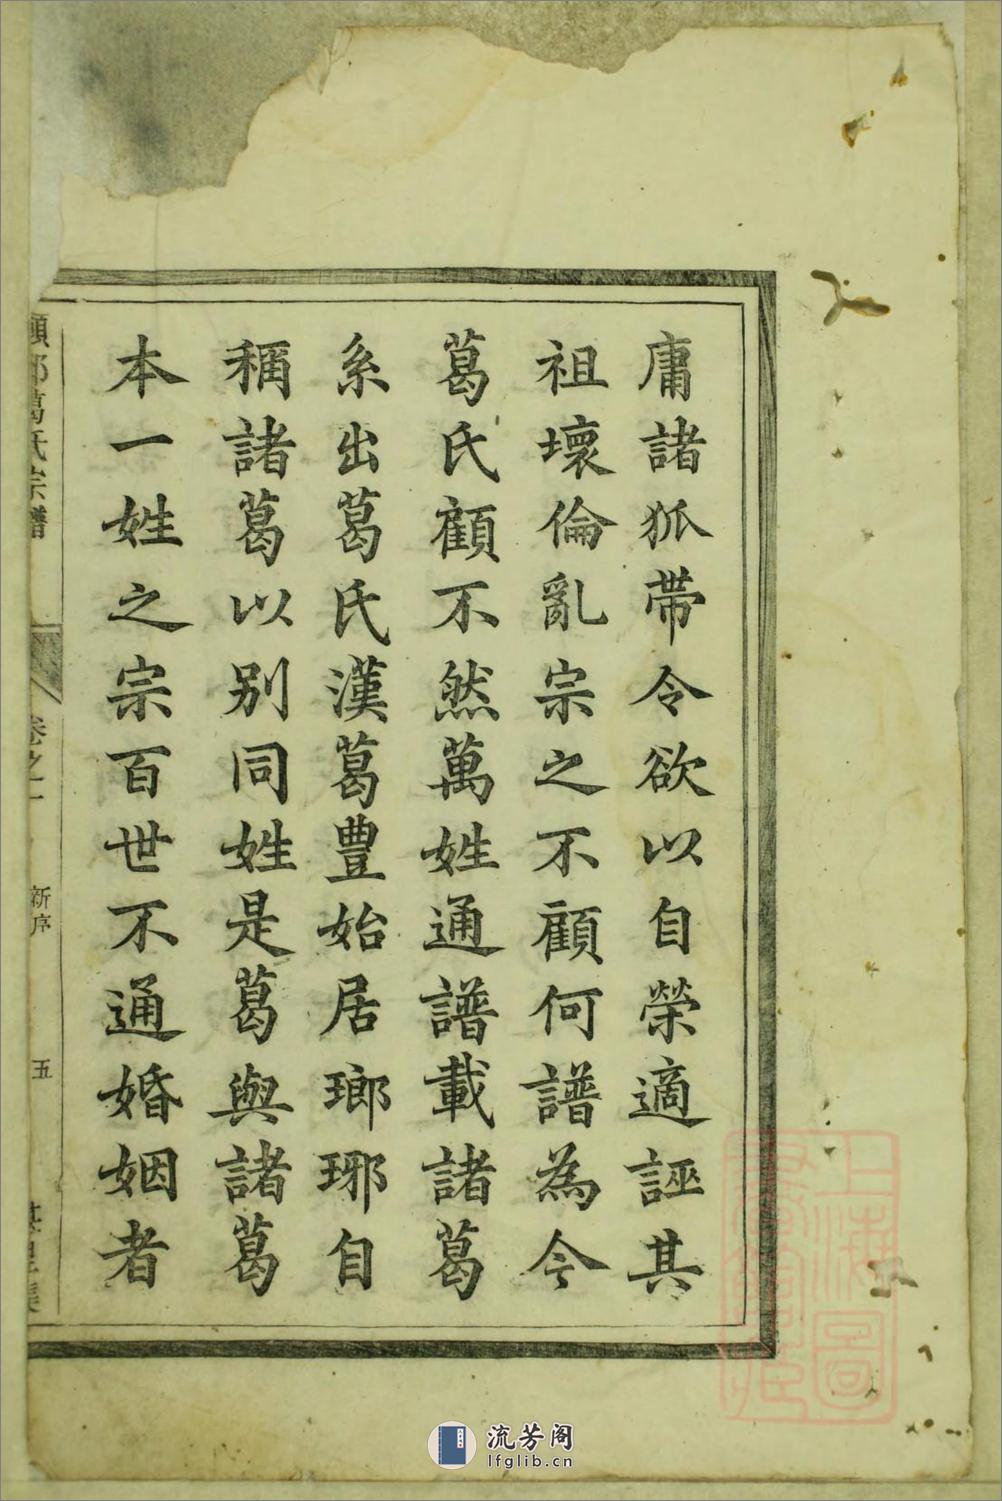 庸諸狐帶令欲以自榮適誣其
祖壞倫亂宗之不顧何譜為今
葛氏顧不然萬姓通譜載諸葛
系出葛氏漢葛豐始居瑯琊自
稱諸葛以别同姓是葛與諸葛
本一姓之宗百世不通婚姻者
葛氏宗譜
卷之一
新序
五
上海圖書館藏
流芳阁
lfglib.cn